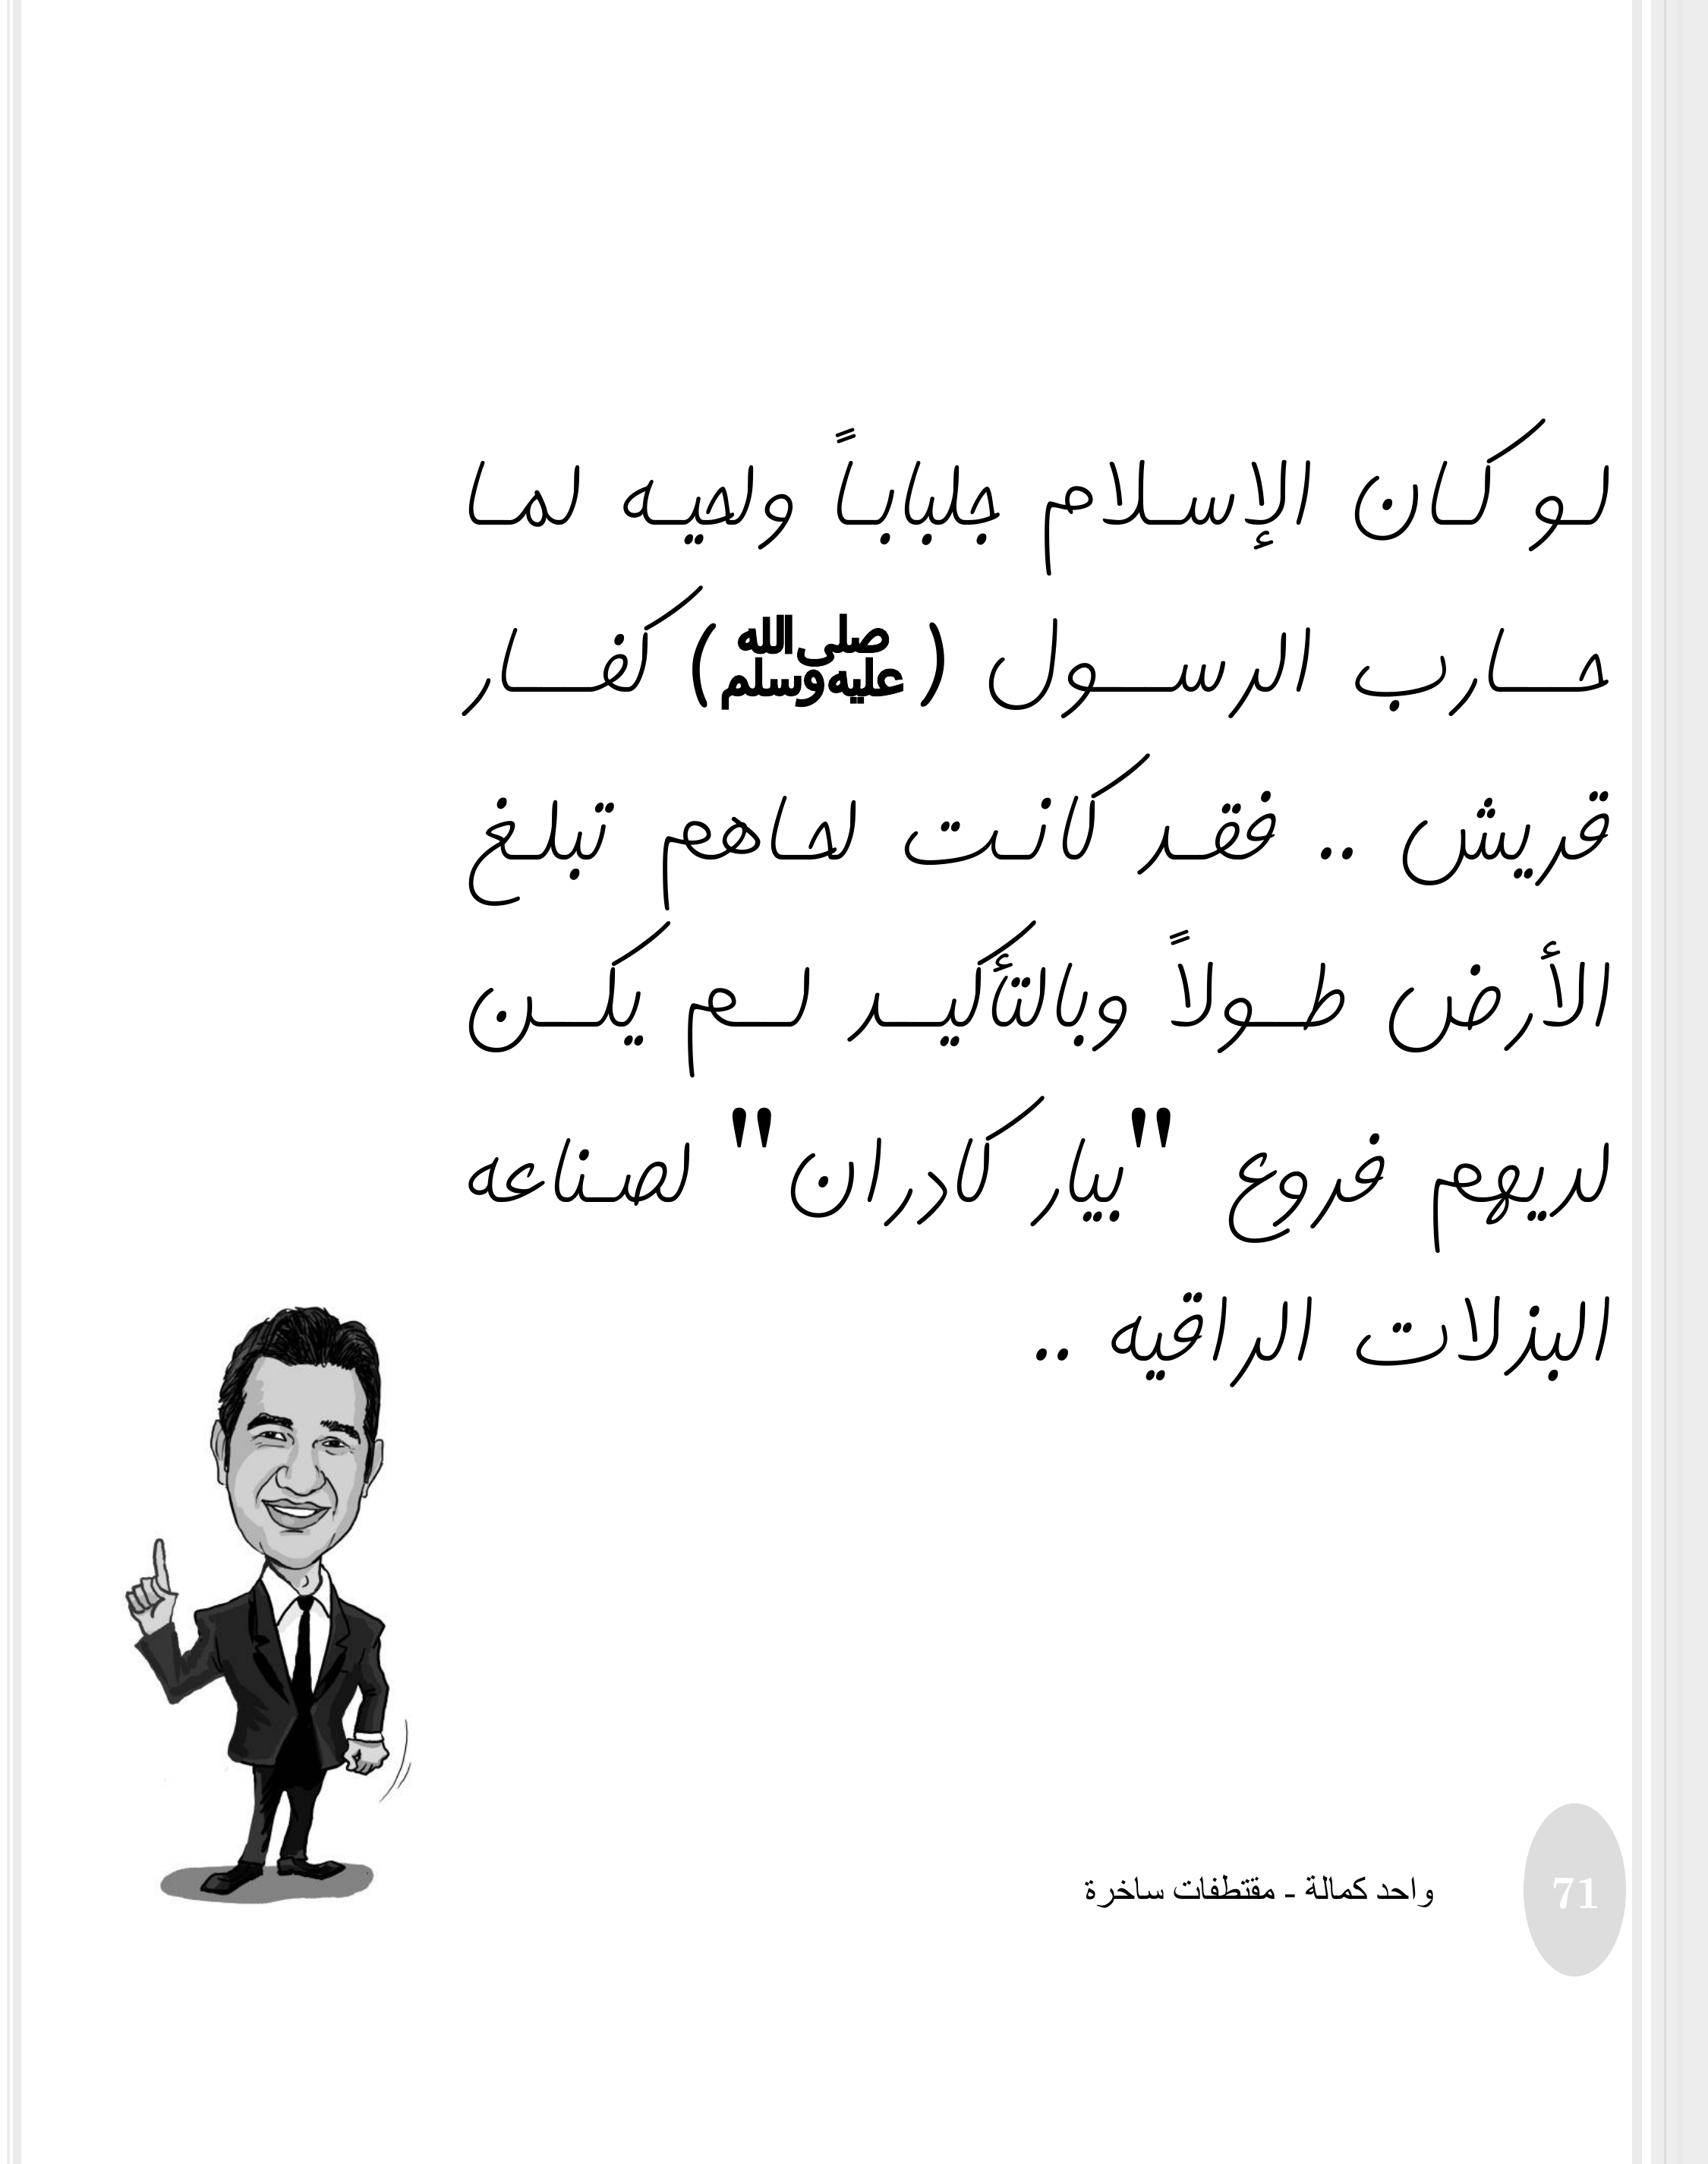 لو كان الإسلام جلباباً ولحيه لما
حارب الرسول (ﷺ) كفار
قريش .. فقد كانت لحاهم تبلغ
الأرض طولاً وبالتأكيد لم يكن
لديهم فروع "بيار كادران" لصناعه
البذلات الراقيه ..
واحد كمالة - مقتطفات ساخرة
71